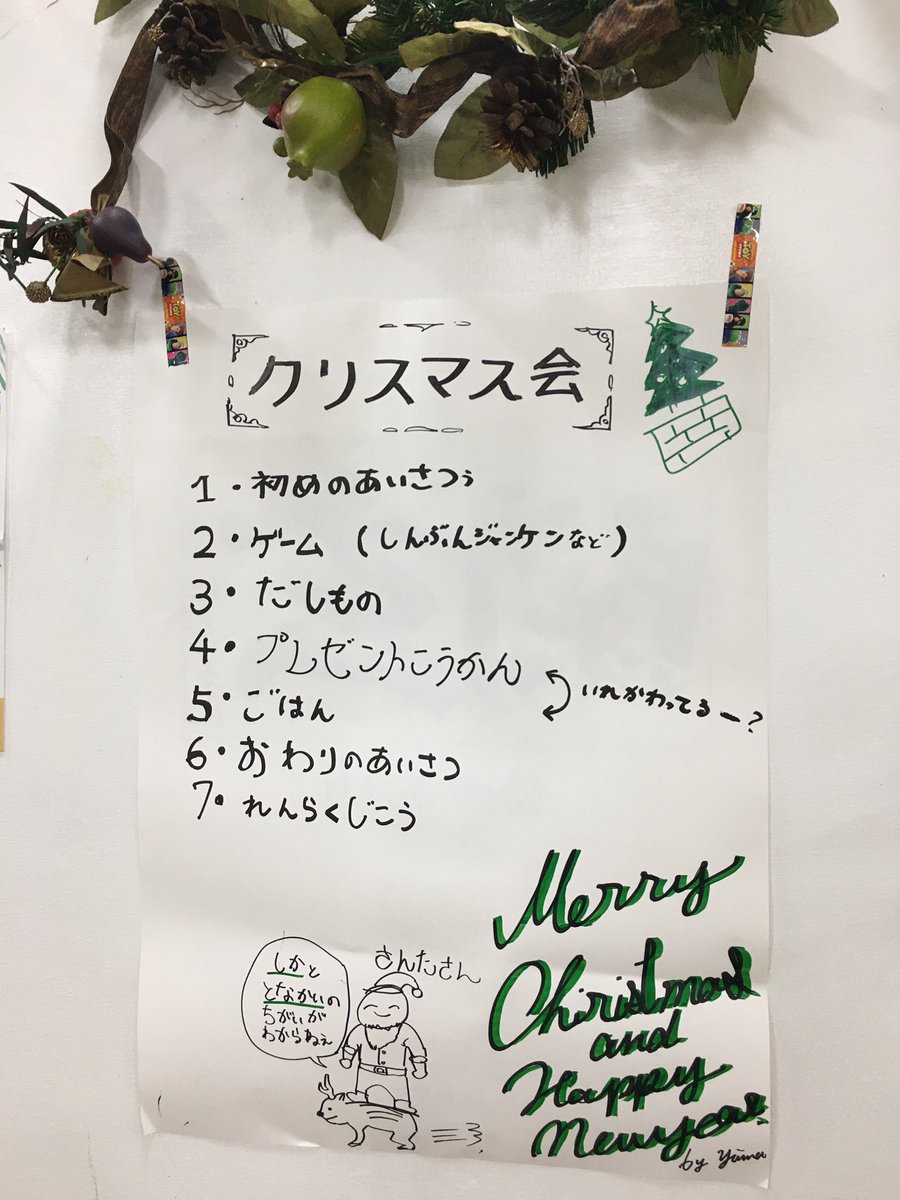 クリスマス会
1・初めのあいさつぅ
2・ゲーム（しんぶんジャンケンなど）
3・だしもの
4・プレゼントこうかん
いれかわってるー?
5・ごはん
6・おわりのあいさつ
7・れんらくじこう
さんたさん
しかと
となかいの
ちがいが
わからねぇ
Merry
Chiristmas
and
Happy
Newyear
by Yūma